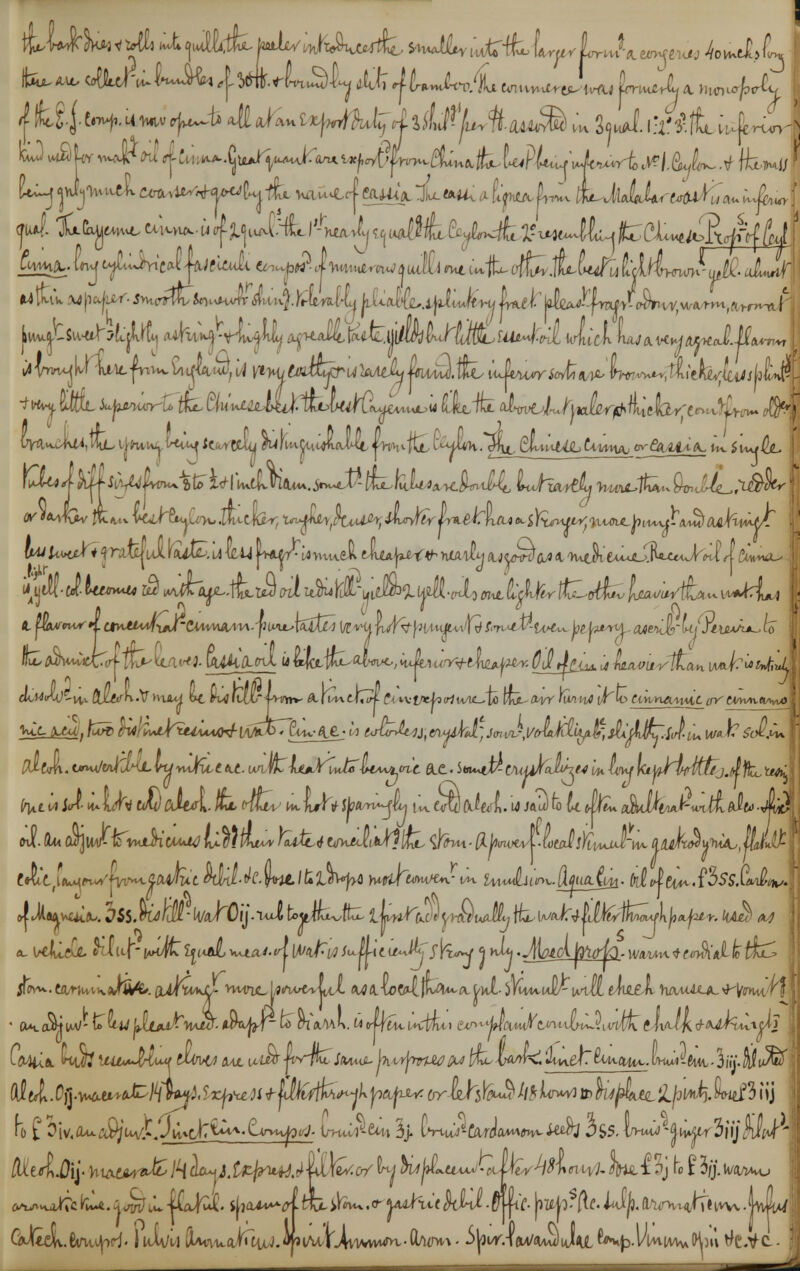 the bark dries & rolls into quills, the smaller into the larger form a congeries 40 inches long
these are collect in bundles of 30 lb. & bound by slits of bamboo. The commerce was formerly a monopoly
of the E.I. Comp. is now open to all at an export duty of per lb. assorted in 3 qual. 1. 2. 3. the inferior
kind used for oil of Cinna. Great quant. are export from China the best being inferior to No 1. Ceylon. & the
being much coarser & goes by the name of cassia. The cassia lignea from the Malabar coast is an inferior
qual. The Cayenne cinna. is of 2 qual. the 1st nearly equal the Ceylon the 2 resembling the Chinese. Prop. of Ceyl
Cinna. long cylindrical fasciculi compos of numerous quills one in the other. the best is light brown yell. almost
as thin as paper. smooth somewt shining. tolerably pliable. splintery fract. pleas fragr odour, warm, aromat
pung. sweet slightly astring & highly agreable taste. yields but little essent. oil which has a very agreeal. flavour
is brought here from England, is very costly & is rarely found. the inferior sorts are browner, thicker, less splint
& very little superior to the Chinese best. the best Cayenne is like the above but paler & thicker, from old
branches, the young being scarcely distinguishable from the Ceylon. The Chinese Cinna or Cassia in single
tubes of diff sizes from to 1 inch diam. somet the tubes are double but rarely more than double, redder
or darker than best Ceylon. thicker, rougher, denser, shorter fract. has a stronger, more pung and astring
less sweet & grateful taste. is less fragr is much cheaper & nearly as good as a medicine. Recent oil of Cinna
is light yell. col. becomes red with age. the red oil redistill yields 2 yell. oils one lighter the other heavier than wat. has
a flavour of concentrat cinnamon. pure tastes very hot & pungent & sometimes peppery. ascrib by Pereira to
the admixt. of the leaves. Cassia oil is like the above, inferior & cheaper. Oil of cin. is heavier than wat. is
dissolv in Alcoh. & may be distill from a tinct. of cin. expos to the air turns it to cinnamic or cinnamo
nic acid, two distinct resins & wat. Cin. ac. is colorless, crystal, sour, volatiliza, slightly sol. in wat. sol. in
Alcoh. convertible by nitric ac. with heat into benzoic ac. somet crystalizes in long kept bottles. of the resins
one is sol. in hot & cold alcoh. the other in hot & sparingly in cold Alcoh. is said to be often adulterat with alco. & fix
oil. an adjuvt to medicines to hide their taste & conciliat the stom. A powerf local stimul in gastrodynia, flatul
colic, languor from gastric debil. &c. Dose 1 to 2 drops most conven in emulsion. Aqua Cin. Oil of cin. f℥ss. Carbon.
of Magnesia. ℥ss. Distill Wat. Oij. rub together the 2 first add gradually the wat. & filter through paper. Used as
a vehicle. Dilut with equal meas. of wat. is sufficiently strong gnly. Med. prop. warm & cordial to the
stom. carminative. astring more powerful as a local than a gnl. stimul will check nausea & vomit
an adjuvt to less pleast med. adapt to diarrh. is often in this complaint combin with chalk & astring
Cassia buds resembling cloves are used for the same purposes as the bark. Tinct. Cinnam. bruis cin. ℥iij. dilut
Alcoh. Oij. macerate 14 days. express & filter through paper. or let stand 48 hours & displace 2 pints. Dose f ʒiij
to f ʒiv. an adjuvt. Tinct. Cin. Compos. bruis cin ℥j. bruis cardamom seed ℥ss. bruis ginger ʒiij dilut
Alcoh. Oij. macerate 14 days. express. & filter. or by displacement after 48 hours. Dose f ʒj to f ʒij. warm
aromatic tinc. good in flatul. spasm of the stom. or gastric debil. Offic. prep. &c. Pulv. aromaticum. Infus
Catech. Compos. Pulvis Aromaticus. Spirit Ammon. Arom. Spir. Lavandulae Comp. Vinum Opii &c. &c.